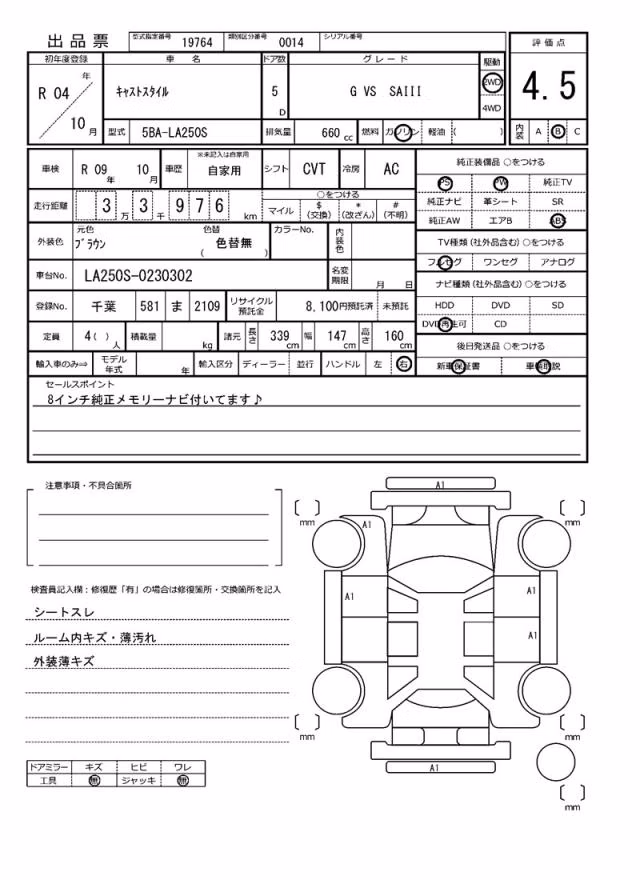 出品票 型式指定番号 19764 類別区分番号 0014 シリアル番号
評価点
4.5
内装 A B C
初年度登録 車名 ドア数 グレード 駆動
R 04 年 10 月 キャストスタイル 5 D G VS SAIII 2WD 4WD
型式 5BA-LA250S 排気量 660 cc 燃料 ガソリン 軽油 ( )
車検 R 09 年 10 月 車歴 ※未記入は自家用 自家用 シフト CVT 冷房 AC
走行距離 3 万 3 千 9 7 6 km
○をつける
マイル $ (交換) * (改ざん) # (不明)
外装色 元色 ブラウン 色替 ( 色替無 ) カラーNo. 内装色
車台No. LA250S-0230302 名変期限 月 日
登録No. 千葉 581 ま 2109 リサイクル預託金 8,100円預託済 未預託
定員 4( ) 人 積載量 kg 諸元 長さ 339 cm 幅 147 cm 高さ 160 cm
輸入車のみ⇒ モデル年式 年 輸入区分 ディーラー 並行 ハンドル 左 右
純正装備品 ○をつける
PS PW 純正TV
純正ナビ 革シート SR
純正AW エアB ABS
TV種類 (社外品含む) ○をつける
フルセグ ワンセグ アナログ
ナビ種類 (社外品含む) ○をつける
HDD DVD SD
DVD再生可 CD
後日発送品 ○をつける
新車保証書 車輌取説
セールスポイント
8インチ純正メモリーナビ付いてます♪
注意事項・不具合箇所
検査員記入欄：修復歴「有」の場合は修復箇所・交換箇所を記入
シートスレ
ルーム内キズ・薄汚れ
外装薄キズ
ドアミラー キズ ヒビ ワレ
工具 無 ジャッキ 無
A1
mm mm
A1
A1 A1
A1
mm mm
A1
mm